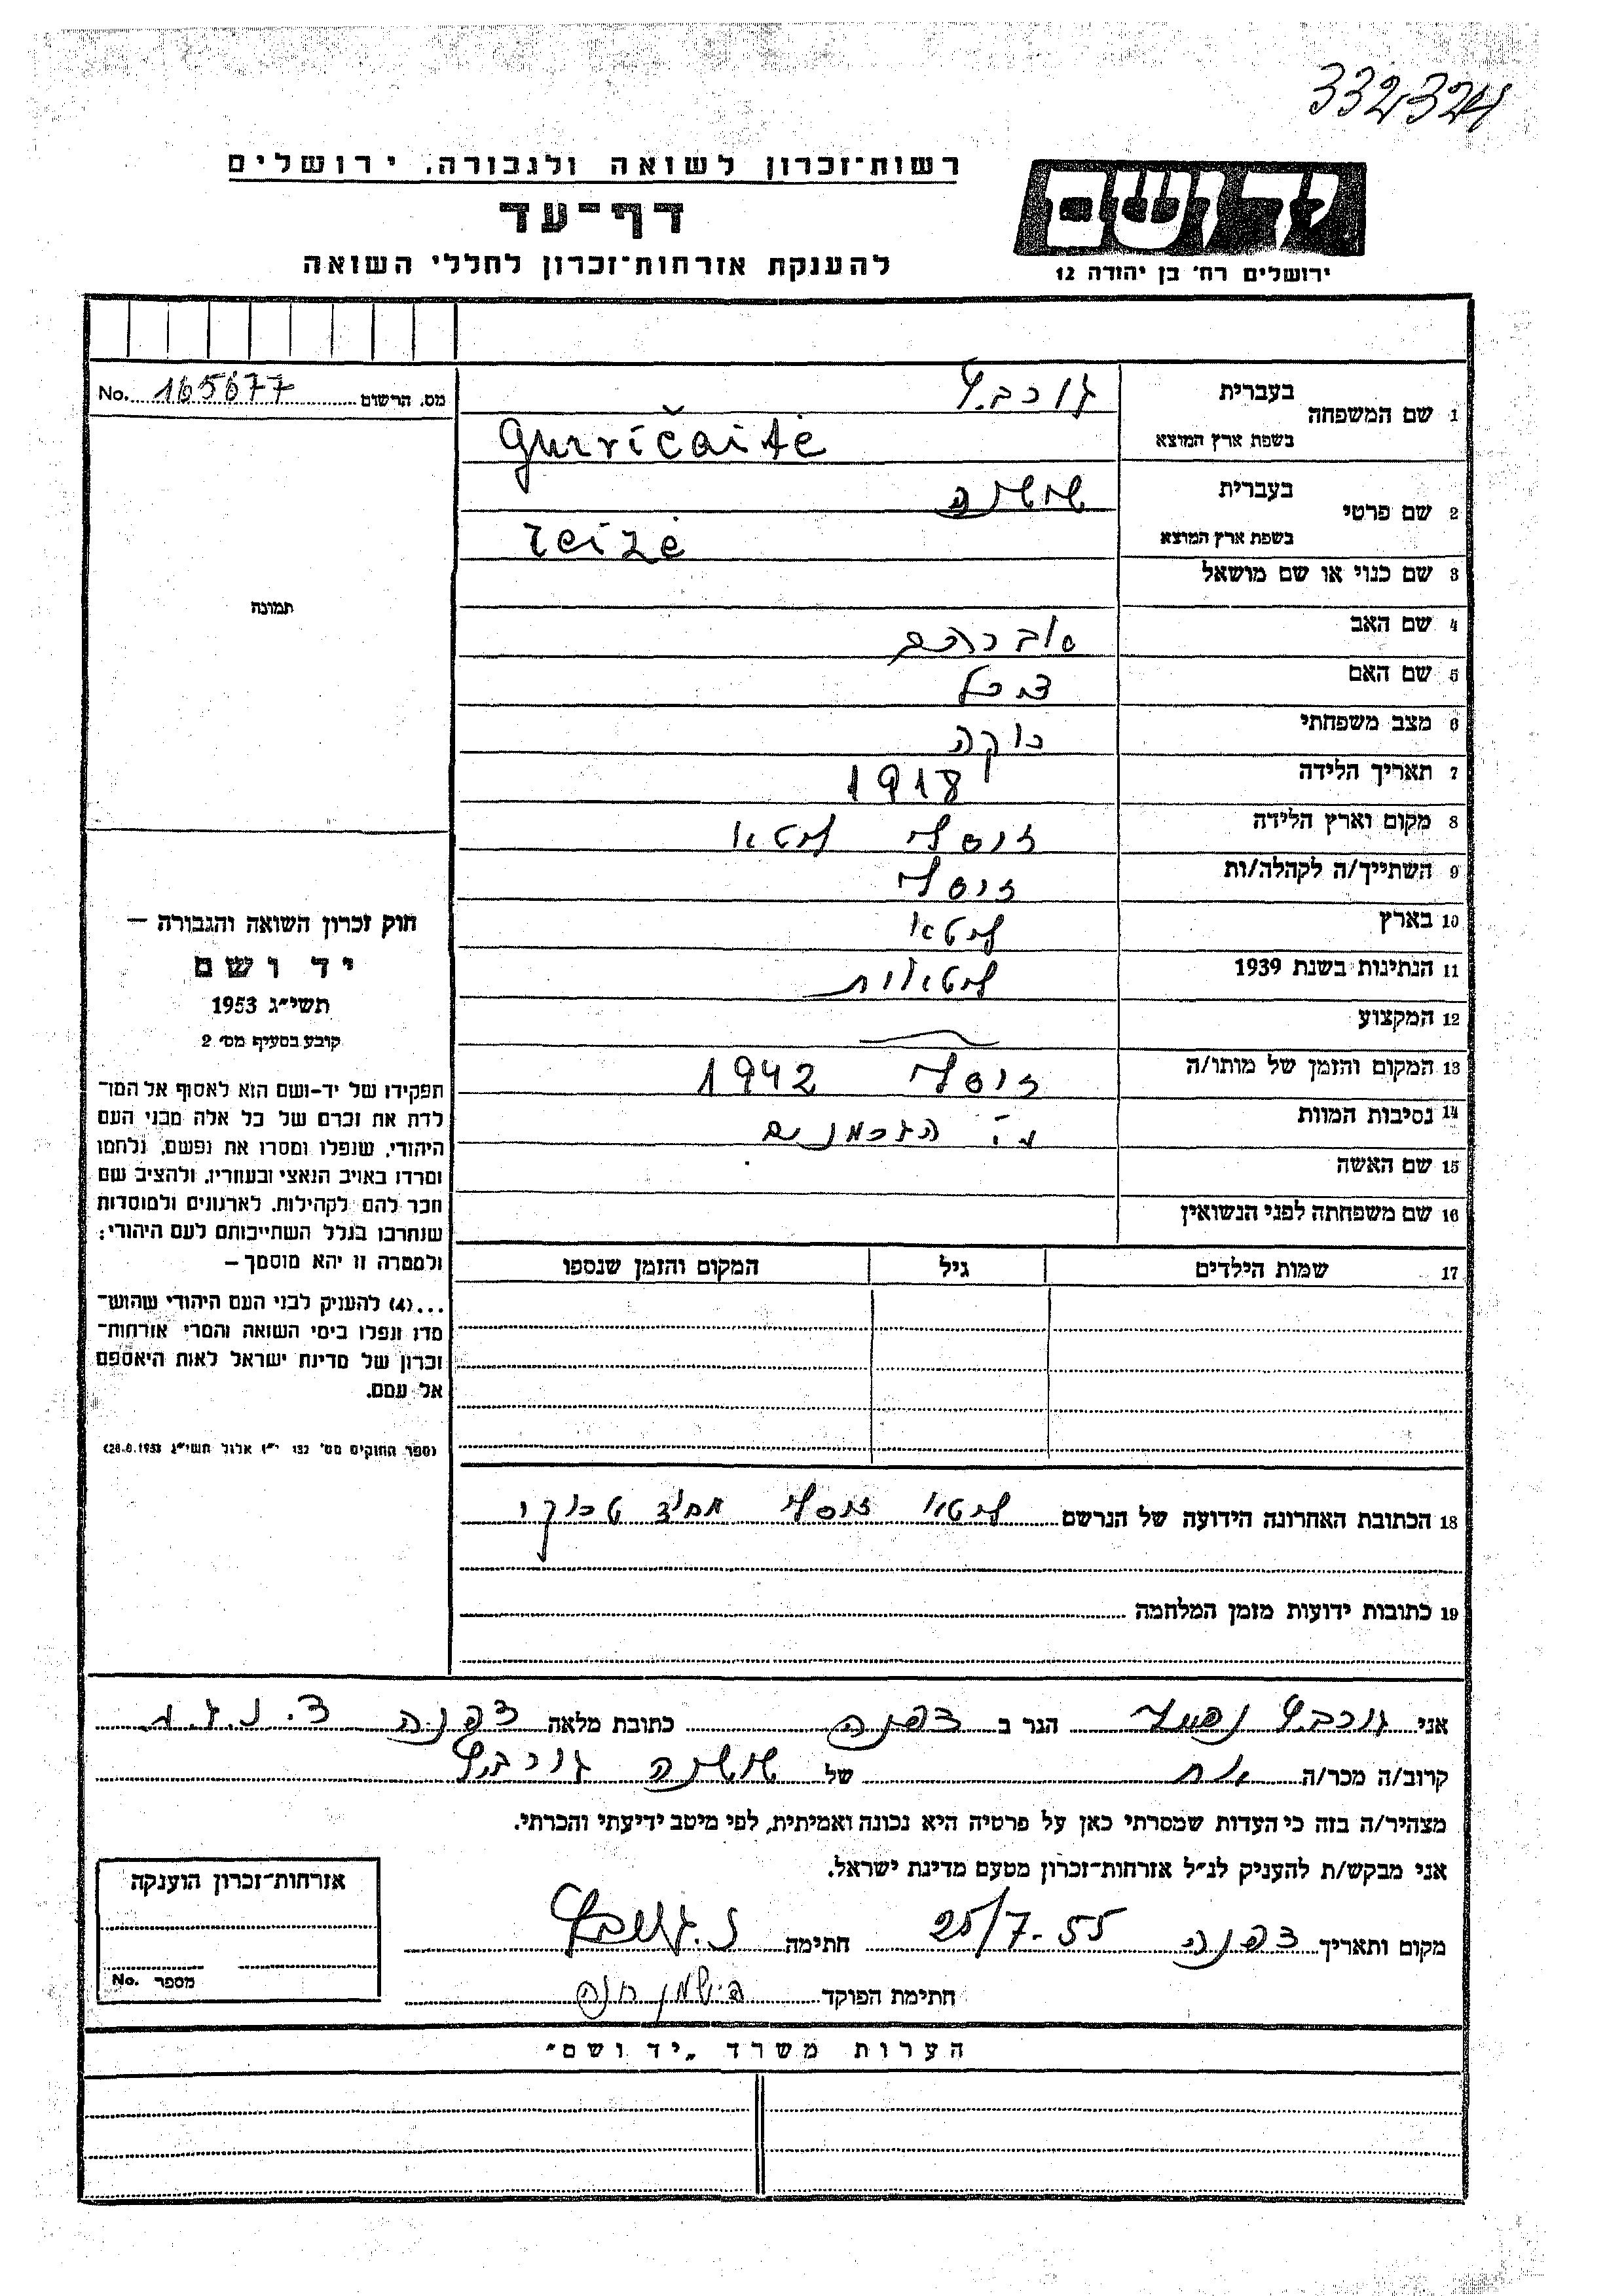 332324
רשות־זכרון לשואה ולגבורה, ירושלים
דף־עד
להענקת אזרחות־זכרון לחללי השואה
יד ושם
ירושלים רח' בן יהודה 12
מס. הרשום 165677 No.
1 שם המשפחה
בעברית
בשפת ארץ המוצא Gurvičaitė
2 שם פרטי
בעברית
בשפת ארץ המוצא
3 שם כנוי או שם מושאל
4 שם האב אברהם
5 שם האם
6 מצב משפחתי רוקה
7 תאריך הלידה 1918
8 מקום וארץ הלידה ליטא
9 השתייך/ה לקהלה/ות
10 בארץ ליטא
11 הנתינות בשנת 1939 ליטאות
12 המקצוע
13 המקום והזמן של מותו/ה 1942
14 נסיבות המוות ע"י הגרמנים
15 שם האשה
16 שם משפחתה לפני הנשואין
17 שמות הילדים גיל המקום והזמן שנספו
תמונה
חוק זכרון השואה והגבורה –
יד ושם
תשי״ג 1953
קובע בסעיף מס׳ 2
תפקידו של יד-ושם הוא לאסוף אל המו־
לדת את זכרם של כל אלה מבני העם
היהודי, שנפלו ומסרו את נפשם, נלחמו
ומרדו באויב הנאצי ובעוזריו, ולהציב שם
וזכר להם לקהילות, לארגונים ולמוסדות
שנחרבו בגלל השתייכותם לעם היהודי;
ולמטרה זו יהא מוסמך –
...(4) להעניק לבני העם היהודי שהוש־
מדו ונפלו בימי השואה והמרי אזרחות־
זכרון של מדינת ישראל לאות היאספם
אל עמם.
(ספר החוקים מס׳ 132 י״ז אלול תשי״ג 28.8.1953)
18 הכתובת האחרונה הידועה של הנרשם ליטא
19 כתובות ידועות מזמן המלחמה
אני גורביץ נפתלי הגר ב דפנה כתובת מלאה דפנה ד. נ. ג. ע
קרוב/ה מכר/ה אח של גורביץ
מצהיר/ה בזה כי העדות שמסרתי כאן על פרטיה היא נכונה ואמיתית, לפי מיטב ידיעתי והכרתי.
אני מבקש/ת להעניק לנ״ל אזרחות־זכרון מטעם מדינת ישראל.
מקום ותאריך דפנה 25/7-55 חתימה נ. גורביץ
חתימת הפוקד
אזרחות־זכרון הוענקה
מספר No.
הערות משרד „יד ושם״